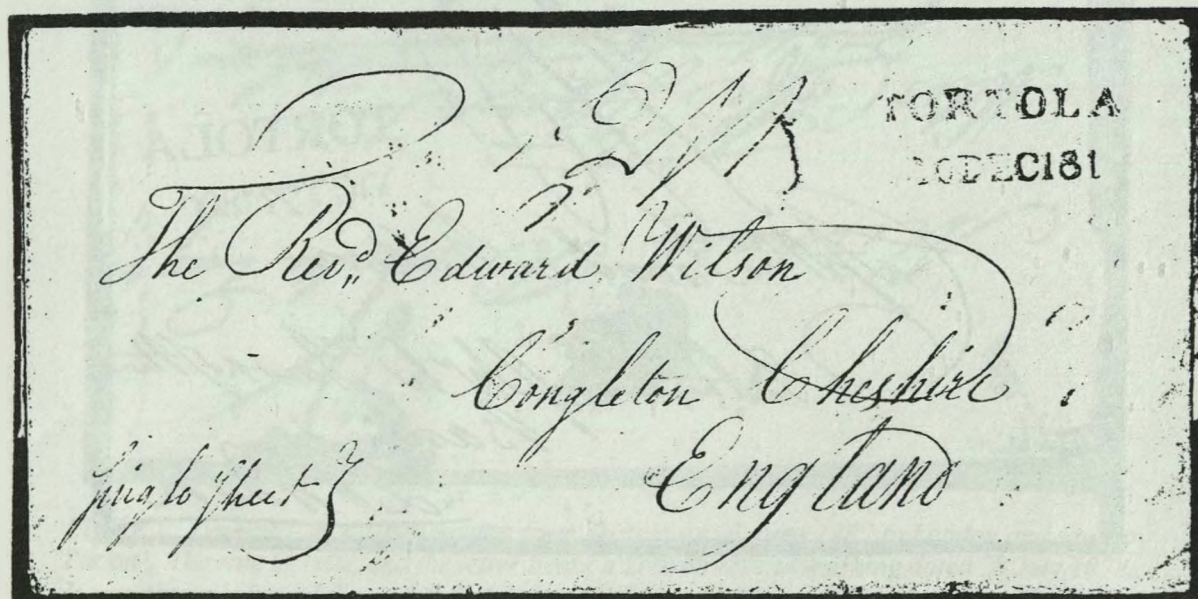 TORTOLA
DEC181
The Revd. Edward Wilson
Congleton Cheshire
England
Single Sheet